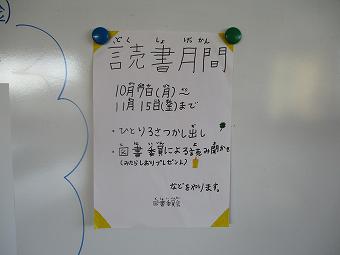 どく しょ げっ かん
読書月間
10月7日(月)〜
11月15日(金)まで
・ひとり3さつかし出し
・図書委員による読み聞かせ
(みたらしおりプレゼント)
などをやります。
図書委員会